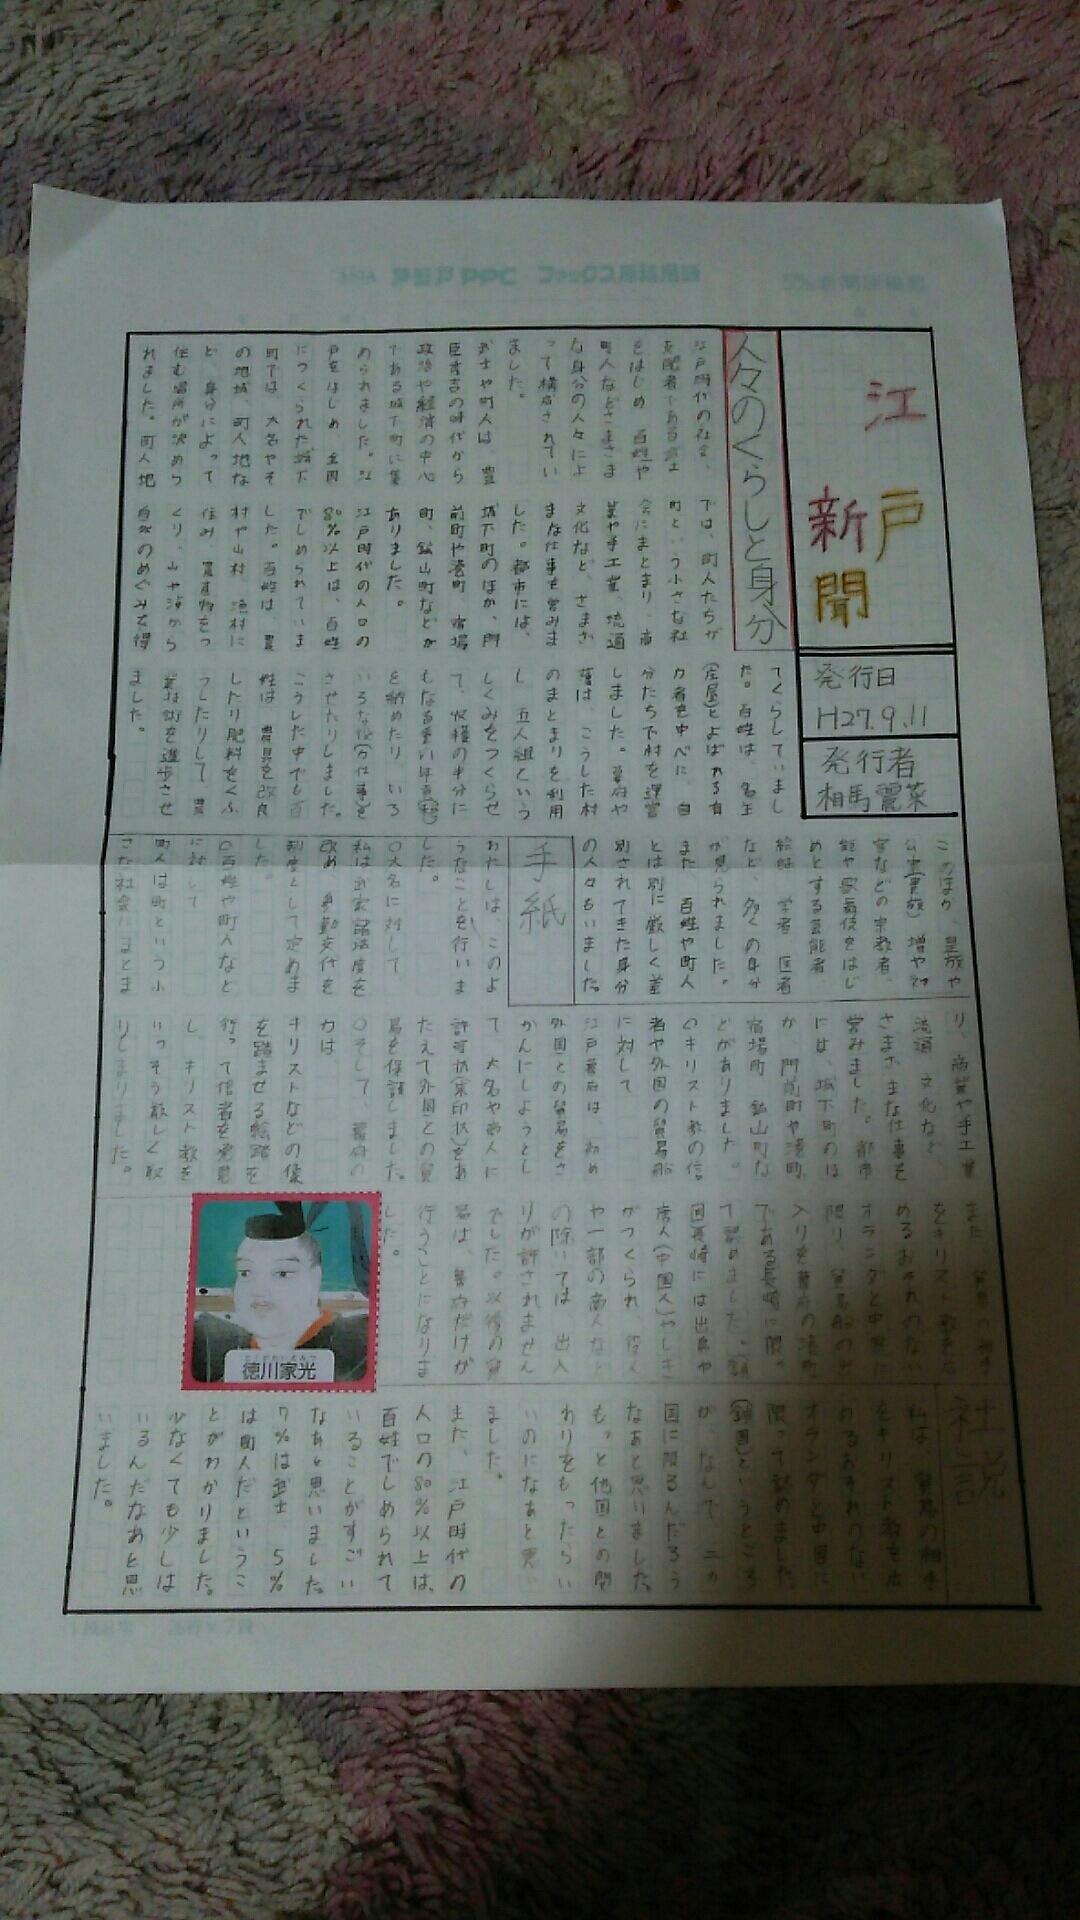 江戸
新聞
発行日
H27.9.11
発行者
相馬麗菜
人々のくらしと身分
江戸時代の社会、
支配者である武士
をはじめ、百姓や
町人などさまざま
な身分の人々によ
って構成されてい
ました。
武士や町人は、豊
臣秀吉の時代から
政治や経済の中心
である城下町に集
められました。江
戸をはじめ、全国
につくられた城下
町では、大名やそ
の地域、町人地な
ど、身分によって
住む場所が決めら
れました。町人地
では、町人たちが
町という小さな社
会にまとまり、商
業や手工業、流通
文化など、さまざ
まな仕事を営みま
した。都市には、
城下町のほか、門
前町や港町、宿場
町、鉱山町などが
ありました。
江戸時代の人口の
80%以上は、百姓
でしめられていま
した。百姓は、農
村や山村、漁村に
住み、農産物をつ
くり、山や海から
自然のめぐみを得
てくらしていまし
た。百姓は、名主
(庄屋)とよばれる有
力者を中心に、自
分たちで村を運営
しました。幕府や
藩は、こうした村
のまとまりを利用
し、五人組という
しくみをつくらせ
て、収穫の半分に
もなる重い年貢(税)
を納めたり、いろ
いろな役(力仕事)を
させたりしました。
こうした中でも百
姓は、農具を改良
したり肥料をくふ
うしたりして、農
業技術を進歩させ
ました。
このほか、皇族や
公家(貴族)、僧や神
官などの宗教者、
能や歌舞伎をはじ
めとする芸能者、
絵師、学者、医者
など、多くの身分
が見られました。
また、百姓や町人
とは別に厳しく差
別されてきた身分
の人々もいました。
手紙
わたしは、このよ
うなことを行いま
した。
○大名に対して
私は武家諸法度を
改め、参勤交代を
制度として定めま
した。
○百姓や町人など
に対して
町人は町という小
さな社会にまとま
り、商業や手工業
流通、文化など、
さまざまな仕事を
営みました。都市
には、城下町のほ
か、門前町や港町、
宿場町、鉱山町な
どがありました。
○キリスト教の信
者や外国の貿易船
に対して
江戸幕府は、初め
外国との貿易をさ
かんにしようとし
て、大名や商人に
許可状(朱印状)をあ
たえて外国との貿
易を保護しました。
○そして、幕府の
力は、
キリストなどの像
を踏ませる絵踏を
行って信者を発見
し、キリスト教を
いっそう厳しく取
りしまりました。
また、貿易の相手
をキリスト教を広
めるおそれのない
オランダと中国に
限り、貿易船の出
入りを幕府の港町
である長崎に限っ
て認めました。(鎖
国)長崎には出島や
唐人(中国人)やしき
がつくられ、役人
や一部の商人など
の除いては、出入
りが許されません
でした。以後の貿
易は、幕府だけが
行うことになりま
した。
徳川家光
社説
私は、貿易の相手
をキリスト教を広
めるおそれのない
オランダと中国に
限って認めました。
(鎖国)というところ
が、なんで、二カ
国に限るんだろう
なあと思いました。
もっと他国との関
わりをもったらい
いのになあと思い
ました。
また、江戸時代の
人口の80%以上は、
百姓でしめられて
いることがすごい
なあと思いました。
7%は武士、5%
は町人だというこ
とがわかりました。
少なくても少しは
いるんだなあと思
いました。